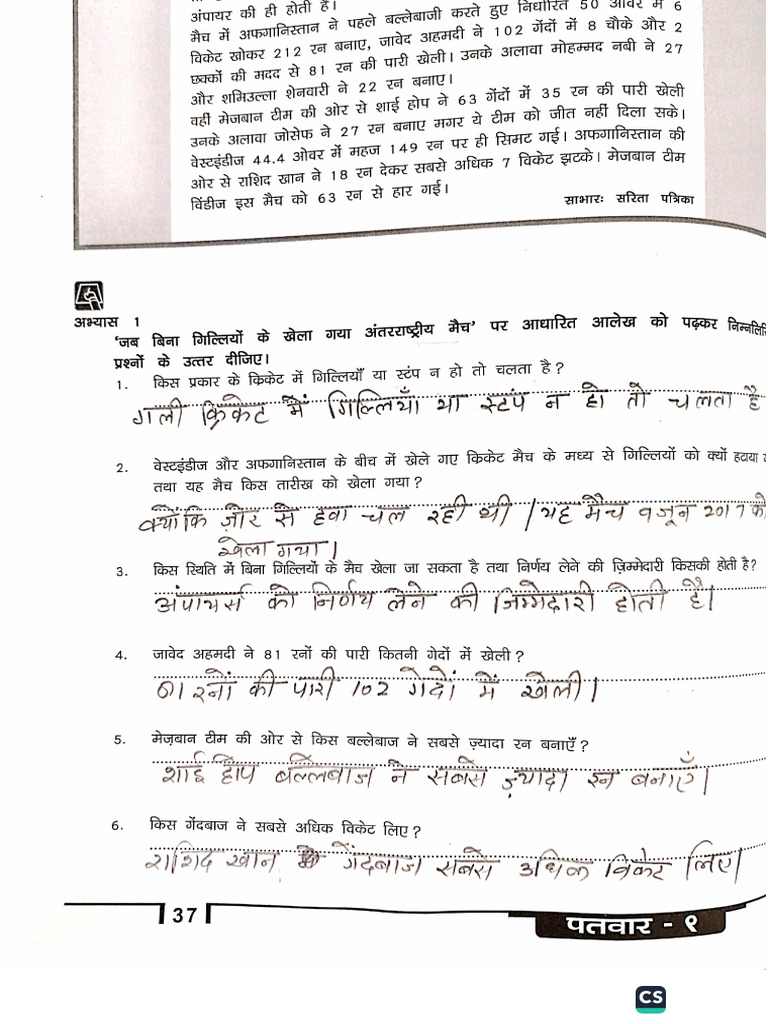 अंपायर की ही होती है।
मैच में अफगानिस्तान ने पहले बल्लेबाजी करते हुए निर्धारित 50 ओवर में 6
विकेट खोकर 212 रन बनाए, जावेद अहमदी ने 102 गेंदों में 8 चौके और 2
छक्कों की मदद से 81 रन की पारी खेली। उनके अलावा मोहम्मद नबी ने 27
और शमिउल्ला शेनवारी ने 22 रन बनाए।
वहीं मेजबान टीम की ओर से शाई होप ने 63 गेंदों में 35 रन की पारी खेली
उनके अलावा जोसेफ ने 27 रन बनाए मगर ये टीम को जीत नहीं दिला सके।
वेस्टइंडीज 44.4 ओवर में महज 149 रन पर ही सिमट गई। अफगानिस्तान की
ओर से राशिद खान ने 18 रन देकर सबसे अधिक 7 विकेट झटके। मेजबान टीम
विंडीज इस मैच को 63 रन से हार गई।
साभारः सरिता पत्रिका
अभ्यास 1
'जब बिना गिल्लियों के खेला गया अंतरराष्ट्रीय मैच' पर आधारित आलेख को पढ़कर
प्रश्नों के उत्तर दीजिए।
1. किस प्रकार के क्रिकेट में गिल्लियाँ या स्टंप न हो तो चलता है?
गली क्रिकेट में गिल्लियाँ या स्टंप न हो तो चलता है
2. वेस्टइंडीज और अफगानिस्तान के बीच में खेले गए क्रिकेट मैच के मध्य से गिल्लियों को क्यों हटाया
तथा यह मैच किस तारीख को खेला गया?
क्योंकि ज़ोर से हवा चल रही थी। यह मैच जून 2017 को
खेला गया।
3. किस स्थिति में बिना गिल्लियों के मैच खेला जा सकता है तथा निर्णय लेने की ज़िम्मेदारी किसकी होती है?
अंपायर्स को निर्णय लेने की जिम्मेदारी होती है।
4. जावेद अहमदी ने 81 रनों की पारी कितनी गेदों में खेली?
रनों की पारी 102 गेदों में खेली।
5. मेज़बान टीम की ओर से किस बल्लेबाज ने सबसे ज़्यादा रन बनाएँ?
शाई होप बल्लिबाज ने सबसे ज़्यादा रन बनाएँ।
6. किस गेंदबाज ने सबसे अधिक विकेट लिए?
राशिद खान गेंदबाज सबसे अधिक विकेट लिए।
37
पतवार - ९
CS